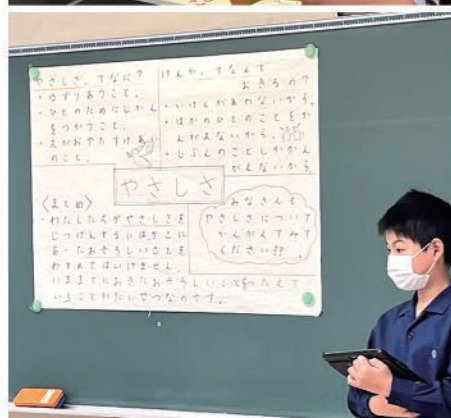 やさしさってなに？
・ゆずりあうこと。
・ひとのためにじかん
をつかうこと。
・えがおやたすけあい
のこと。
けんかってなんで
おきるの？
・いけんがあわないから。
・ほかのひとのことをか
んがえないから。
・じぶんのことしかかん
がえないから。
やさしさ
〈まとめ〉
・わたしたちがやさしさを
じつげんするには、
あったおそろしいことを
わすれてはいけません。
いままでにおきたおそろしいことをつたえて
いくことがたいせつなのです。
みなさんも
やさしさについて
かんがえてみて
ください!!